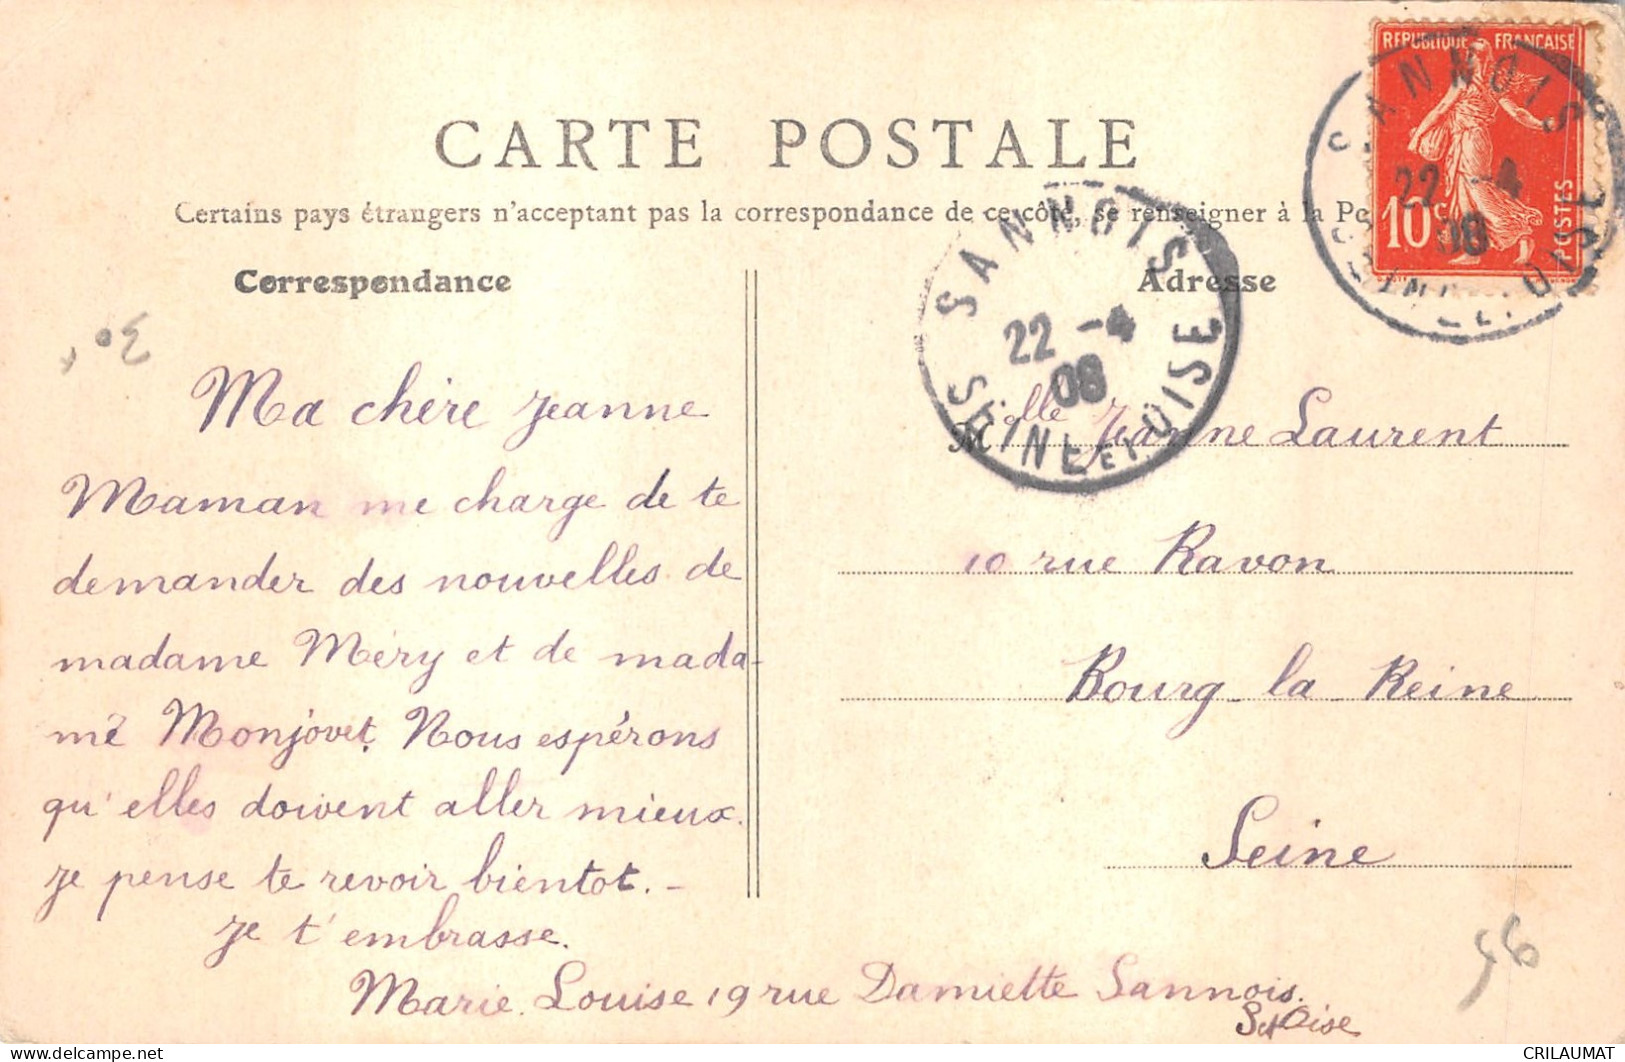 CARTE POSTALE
Certains pays étrangers n'acceptant pas la correspondance de ce côté, se renseigner à la
Correspondance
Adresse
REPUBLIQUE FRANÇAISE
10c
POSTES
SANNOIS
22 -4
08
SEINE ET OISE
SANNOIS
22 -4
08
SEINE ET OISE
Ma chère Jeanne
Maman me charge de te
demander des nouvelles de
madame Méry et de mada-
me Monjovet. Nous espérons
qu'elles doivent aller mieux.
Je pense te revoir bientot. -
Je t'embrasse.
Marie Louise 19 rue Damiette Sannois.
S et Oise
Melle Jeanne Laurent
10 rue Ravon
Bourg la Reine
Seine
30
95
CRILAUMAT